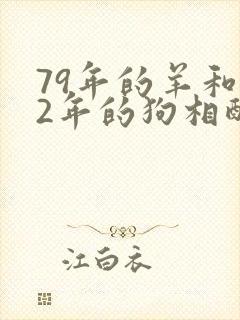 79年的羊和
2年的狗相配
江白衣